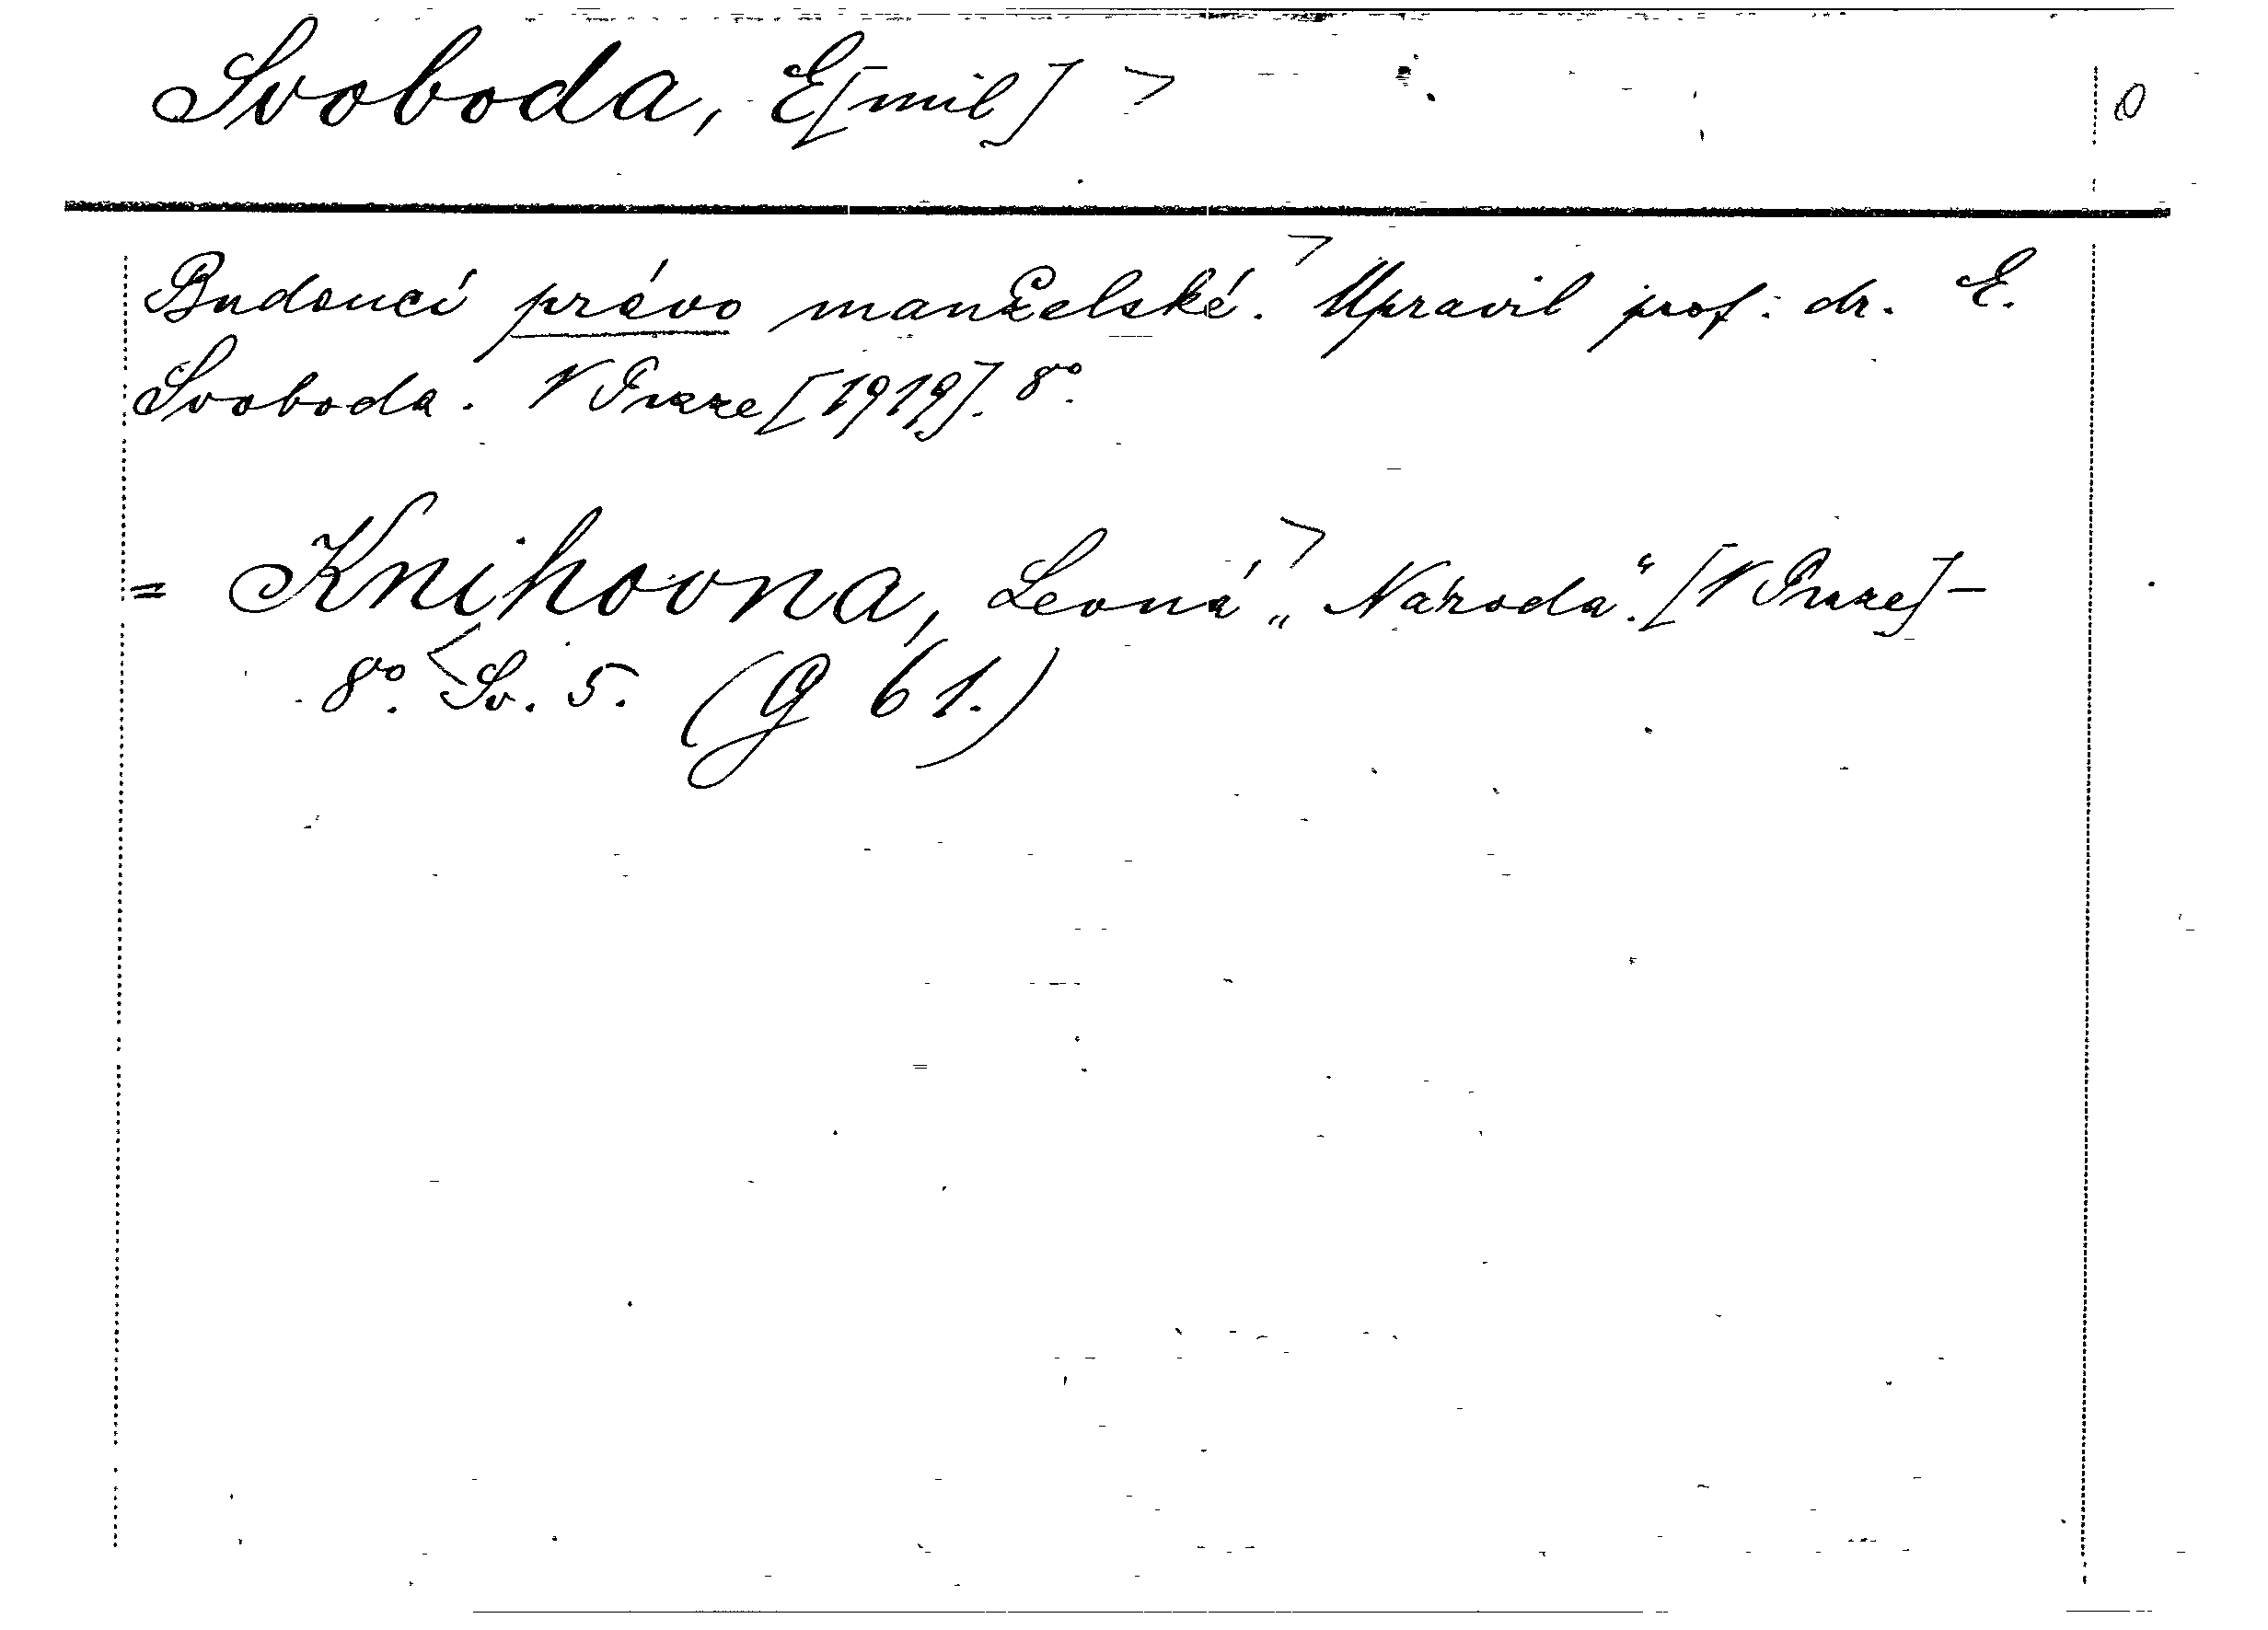 Svoboda, E[mil] 0
Budoucí právo manželské. Upravil prof. dr. E.
Svoboda. V Praze [1919]. 8°.
= Knihovna, Levná „Národa“. [V Praze] –
8°. Sv. 5. (G 61.)